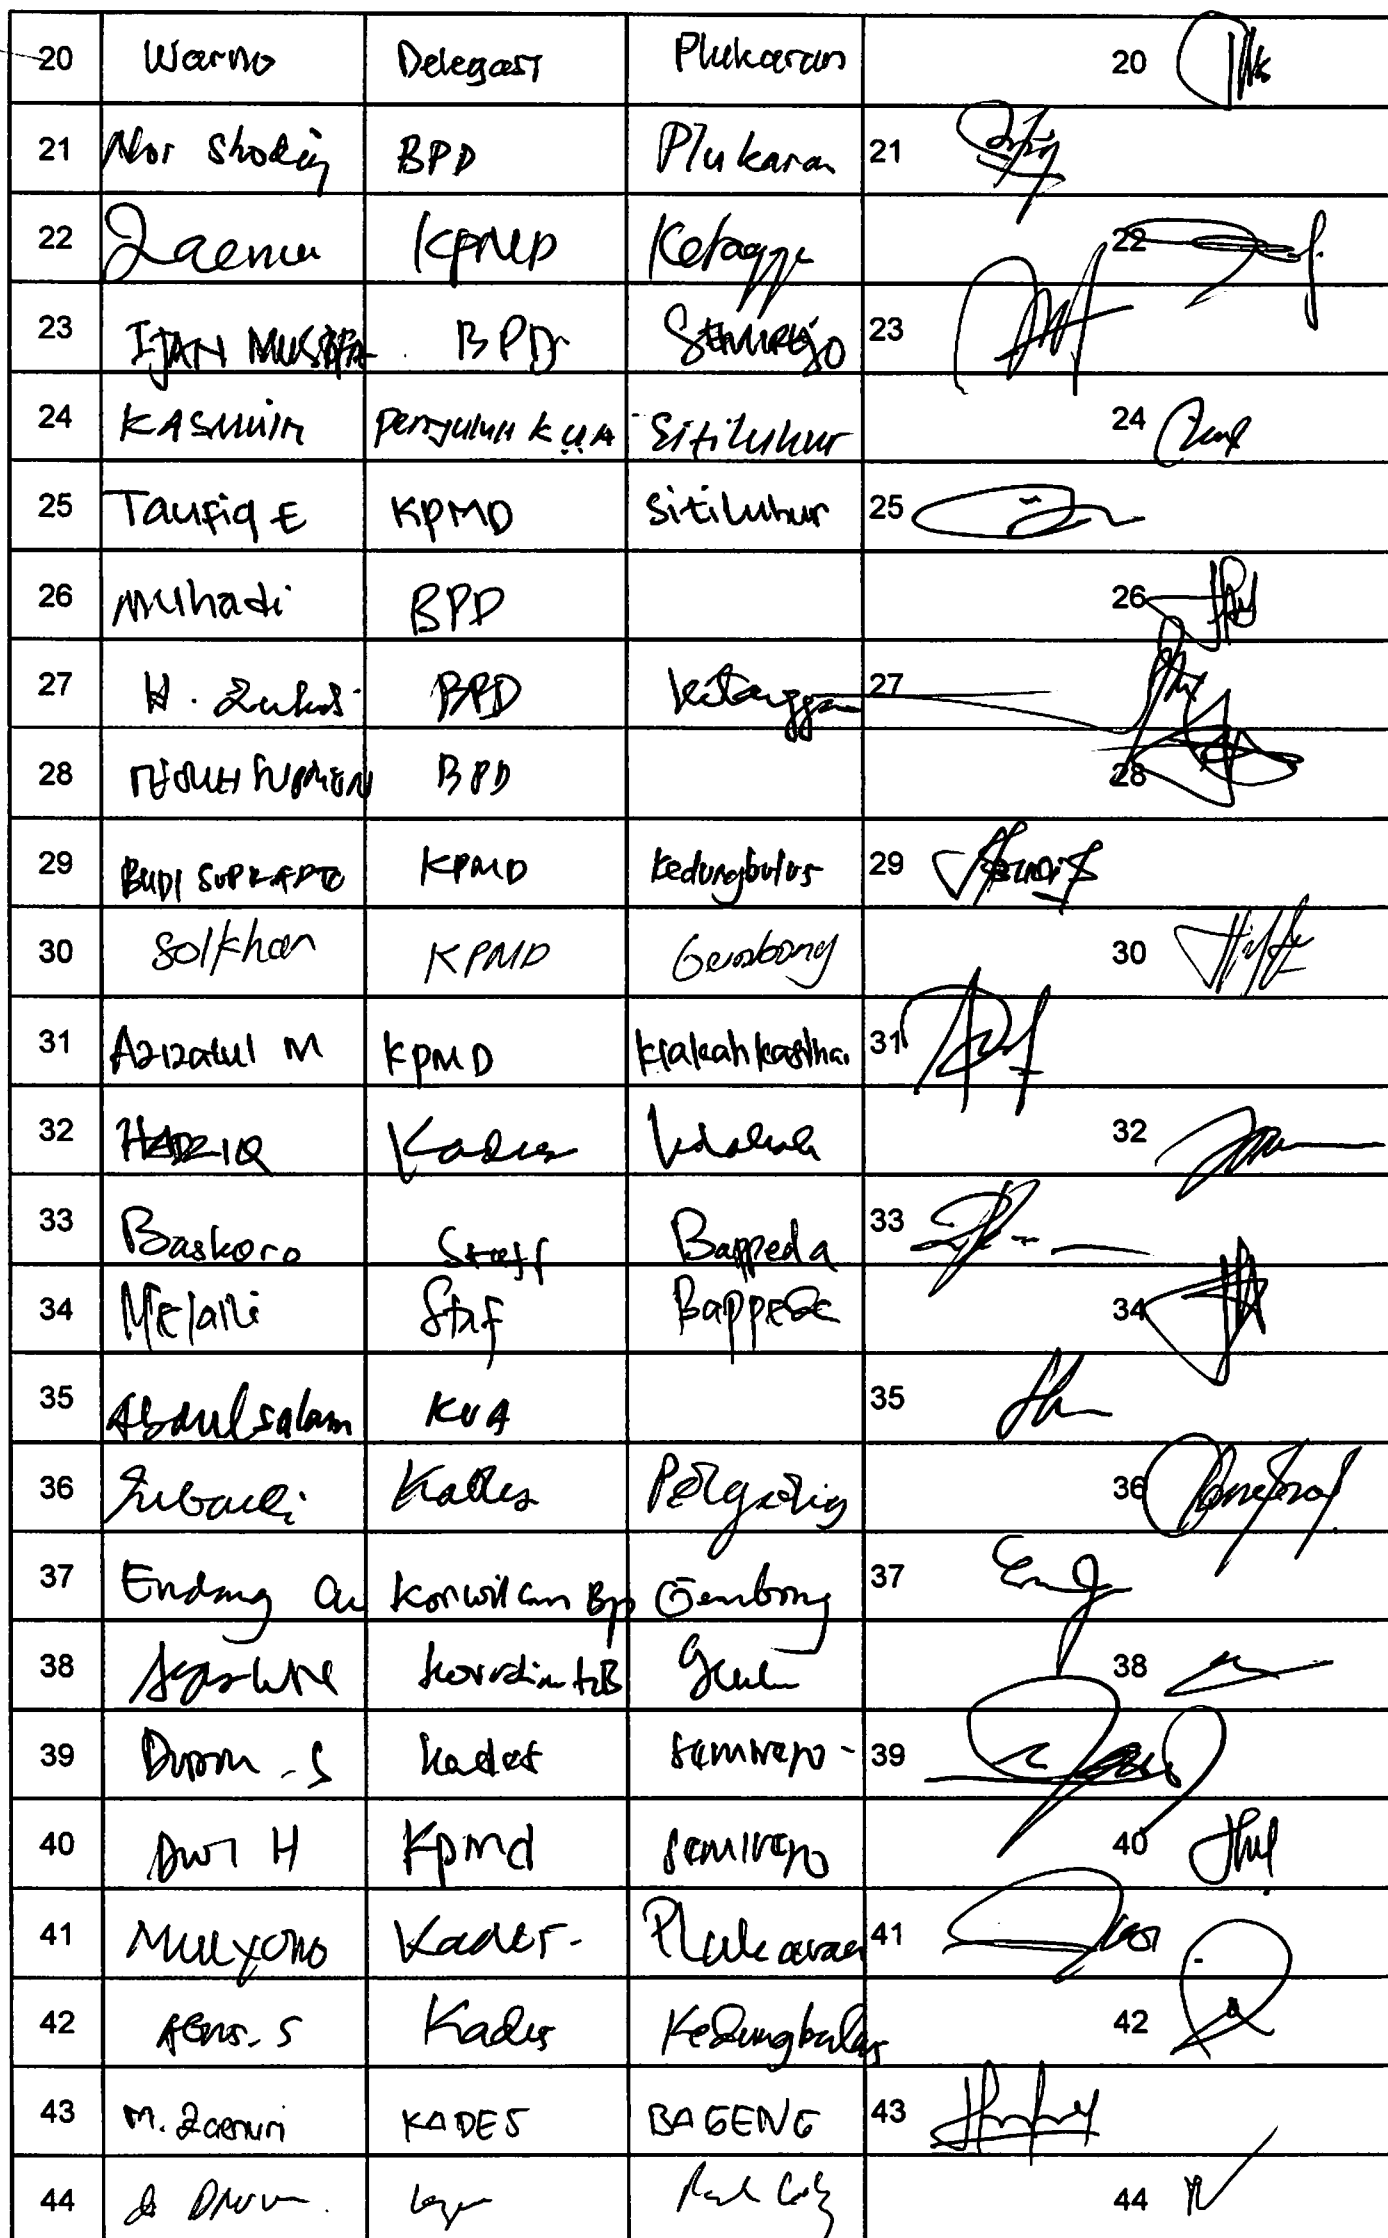 20 Warno Delegasi Plukaran 20
21 Nor Shodiq BPD Plukaran 21
22 Zaenur KPMD Ketangga 22
23 IJAN MUSTOFA BPD SEMIREJO 23
24 KASMUIN Penyuluh KUA Sitiluhur 24
25 Taufiq E KPMD Sitiluhur 25
26 Muhadi BPD 26
27 H. BPD Ketanggan 27
28 BPD 28
29 BUDI SUPRAPTO KPMD Kedungbulus 29
30 Solkhan KPMD Gembong 30
31 Azizatul M KPMD Klakahkasihan 31
32 HADZIQ Kades Klakah 32
33 Baskoro Staff Bappeda 33
34 Melani Staf Bappeda 34
35 Abdul salam KUA 35
36 Kades 36
37 Endang Korwilcam Gembong 37
38 38
39 S Kades Semirejo - 39
40 Dwi H Kpmd Semirejo 40
41 Mulyono Kades - Plukaran 41
42 Agus. S Kades Kedungbulus 42
43 M. Zaenuri KADES BAGENG 43
44 44